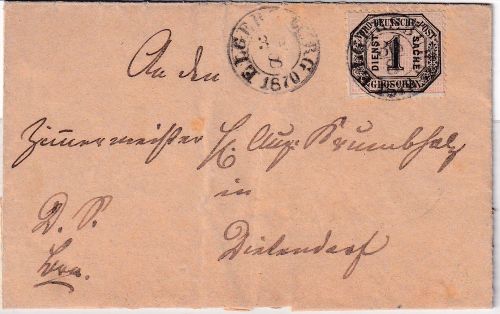 ELGERSBURG
3 8
1870
NORDDEUTSCHE POST
DIENST SACHE
1
GROSCHEN
An den
Zimmermeister H. Aug. Krumbholz
in
D. S.
Dielendorf